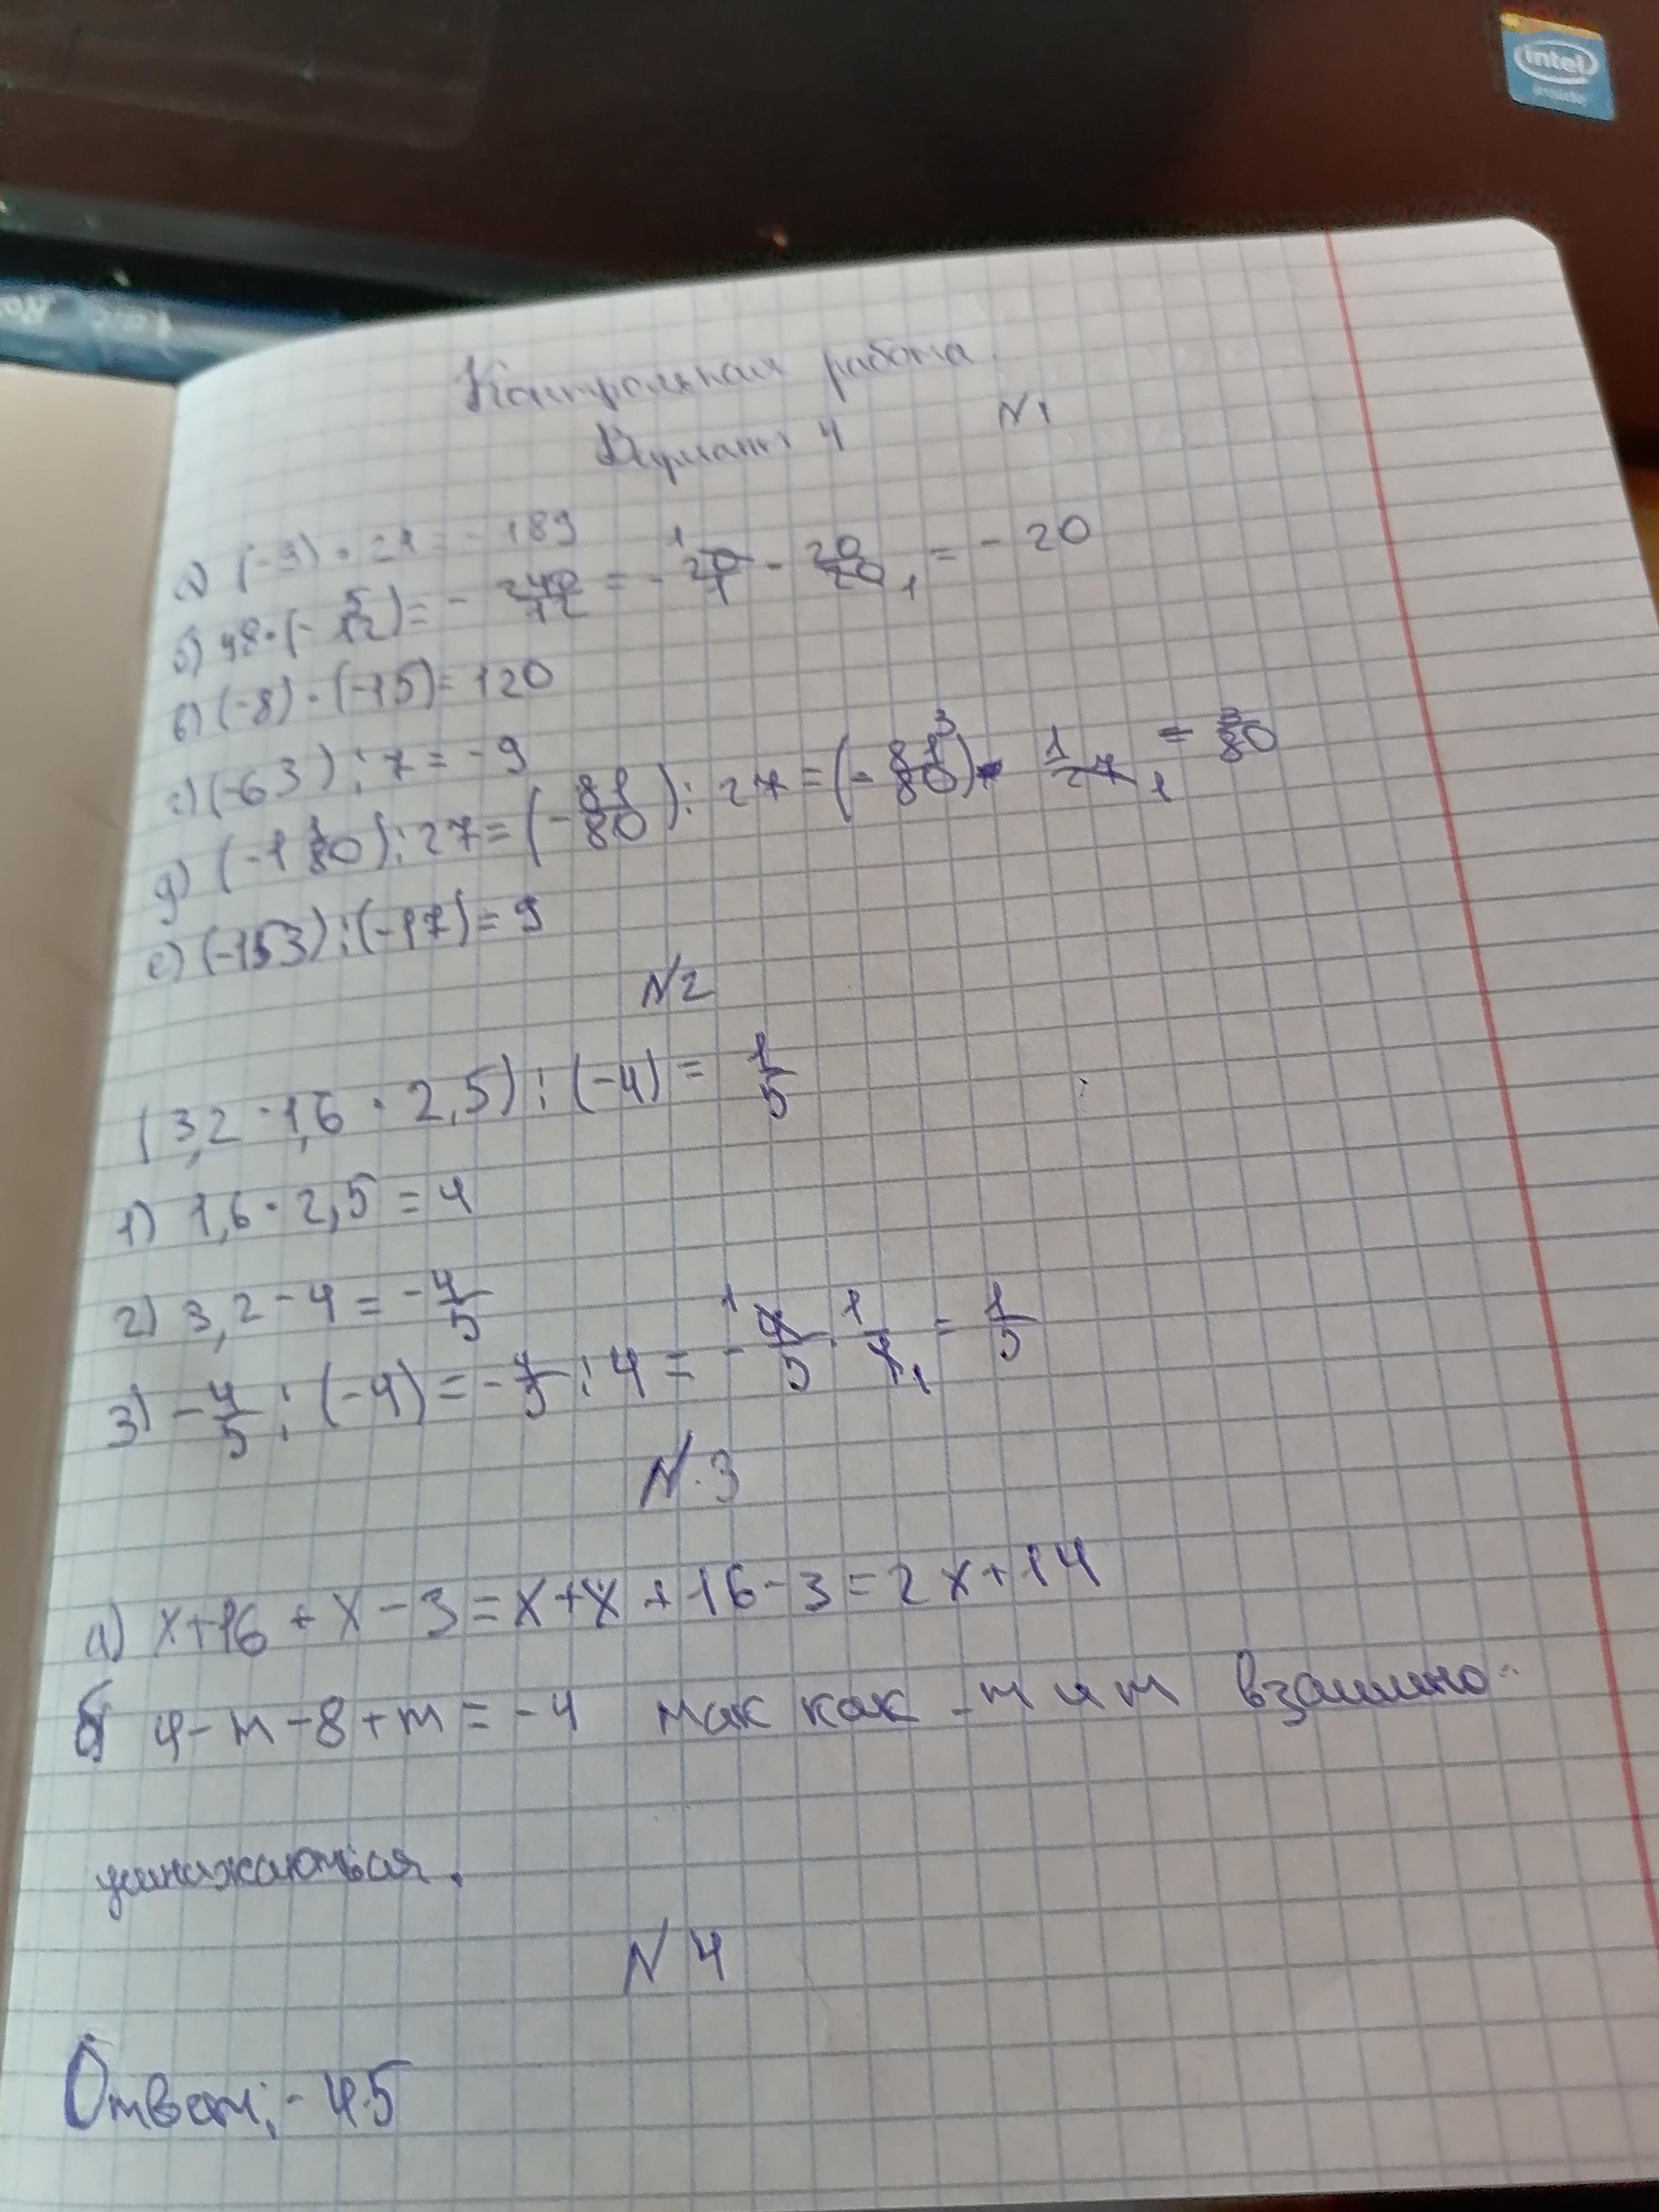 intel inside
Контрольная работа
Вариант 4 N1
а) (-9) · 21 = - 189
б) 48 · (- 5/12) = - 240/12 = - 20/1 - 20/20 1 = - 20
в) (-8) · (-15) = 120
г) (-63) : 7 = -9
д) (-1 1/80) : 27 = (- 81/80) : 27 = (- 81/80) · 1/27 = 3/80
е) (-153) : (-17) = 9
N2
(3,2 - 1,6 · 2,5) : (-4) = 1/5
1) 1,6 · 2,5 = 4
2) 3,2 - 4 = - 4/5
3) - 4/5 : (-4) = - 4/5 : 4 = - 4/5 · 1/4 = 1/5
N.3
а) x+16 + x - 3 = x + x + 16 - 3 = 2x + 14
б) 4 - m - 8 + m = -4 так как -m и m взаимно
N4
Ответ: - 4.5